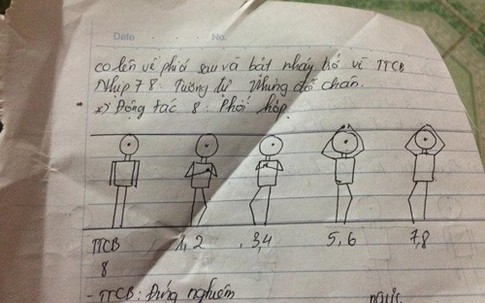 Date No.
co lên về phía sau và bật nhảy trở về TTCB
Nhịp 7 8: Tương tự nhưng đổi chân.
*) Động tác 8: Phối hợp
TTCB 1, 2 , 3,4 5, 6 7,8
8
- TTCB: Đứng nghiêm
ngực